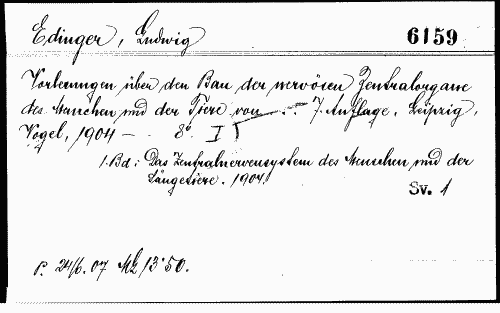 Edinger, Ludwig 6159
Vorlesungen über den Bau der nervösen Zentralorgane
des Menschen und der Tiere von ... 7. Auflage. Leipzig,
Vogel, 1904 — 8° I
1. Bd: Das Zentralnervensystem des Menschen und der
Säugetiere. 1904.
Sv. 1
P. 24/6.07 13·50.